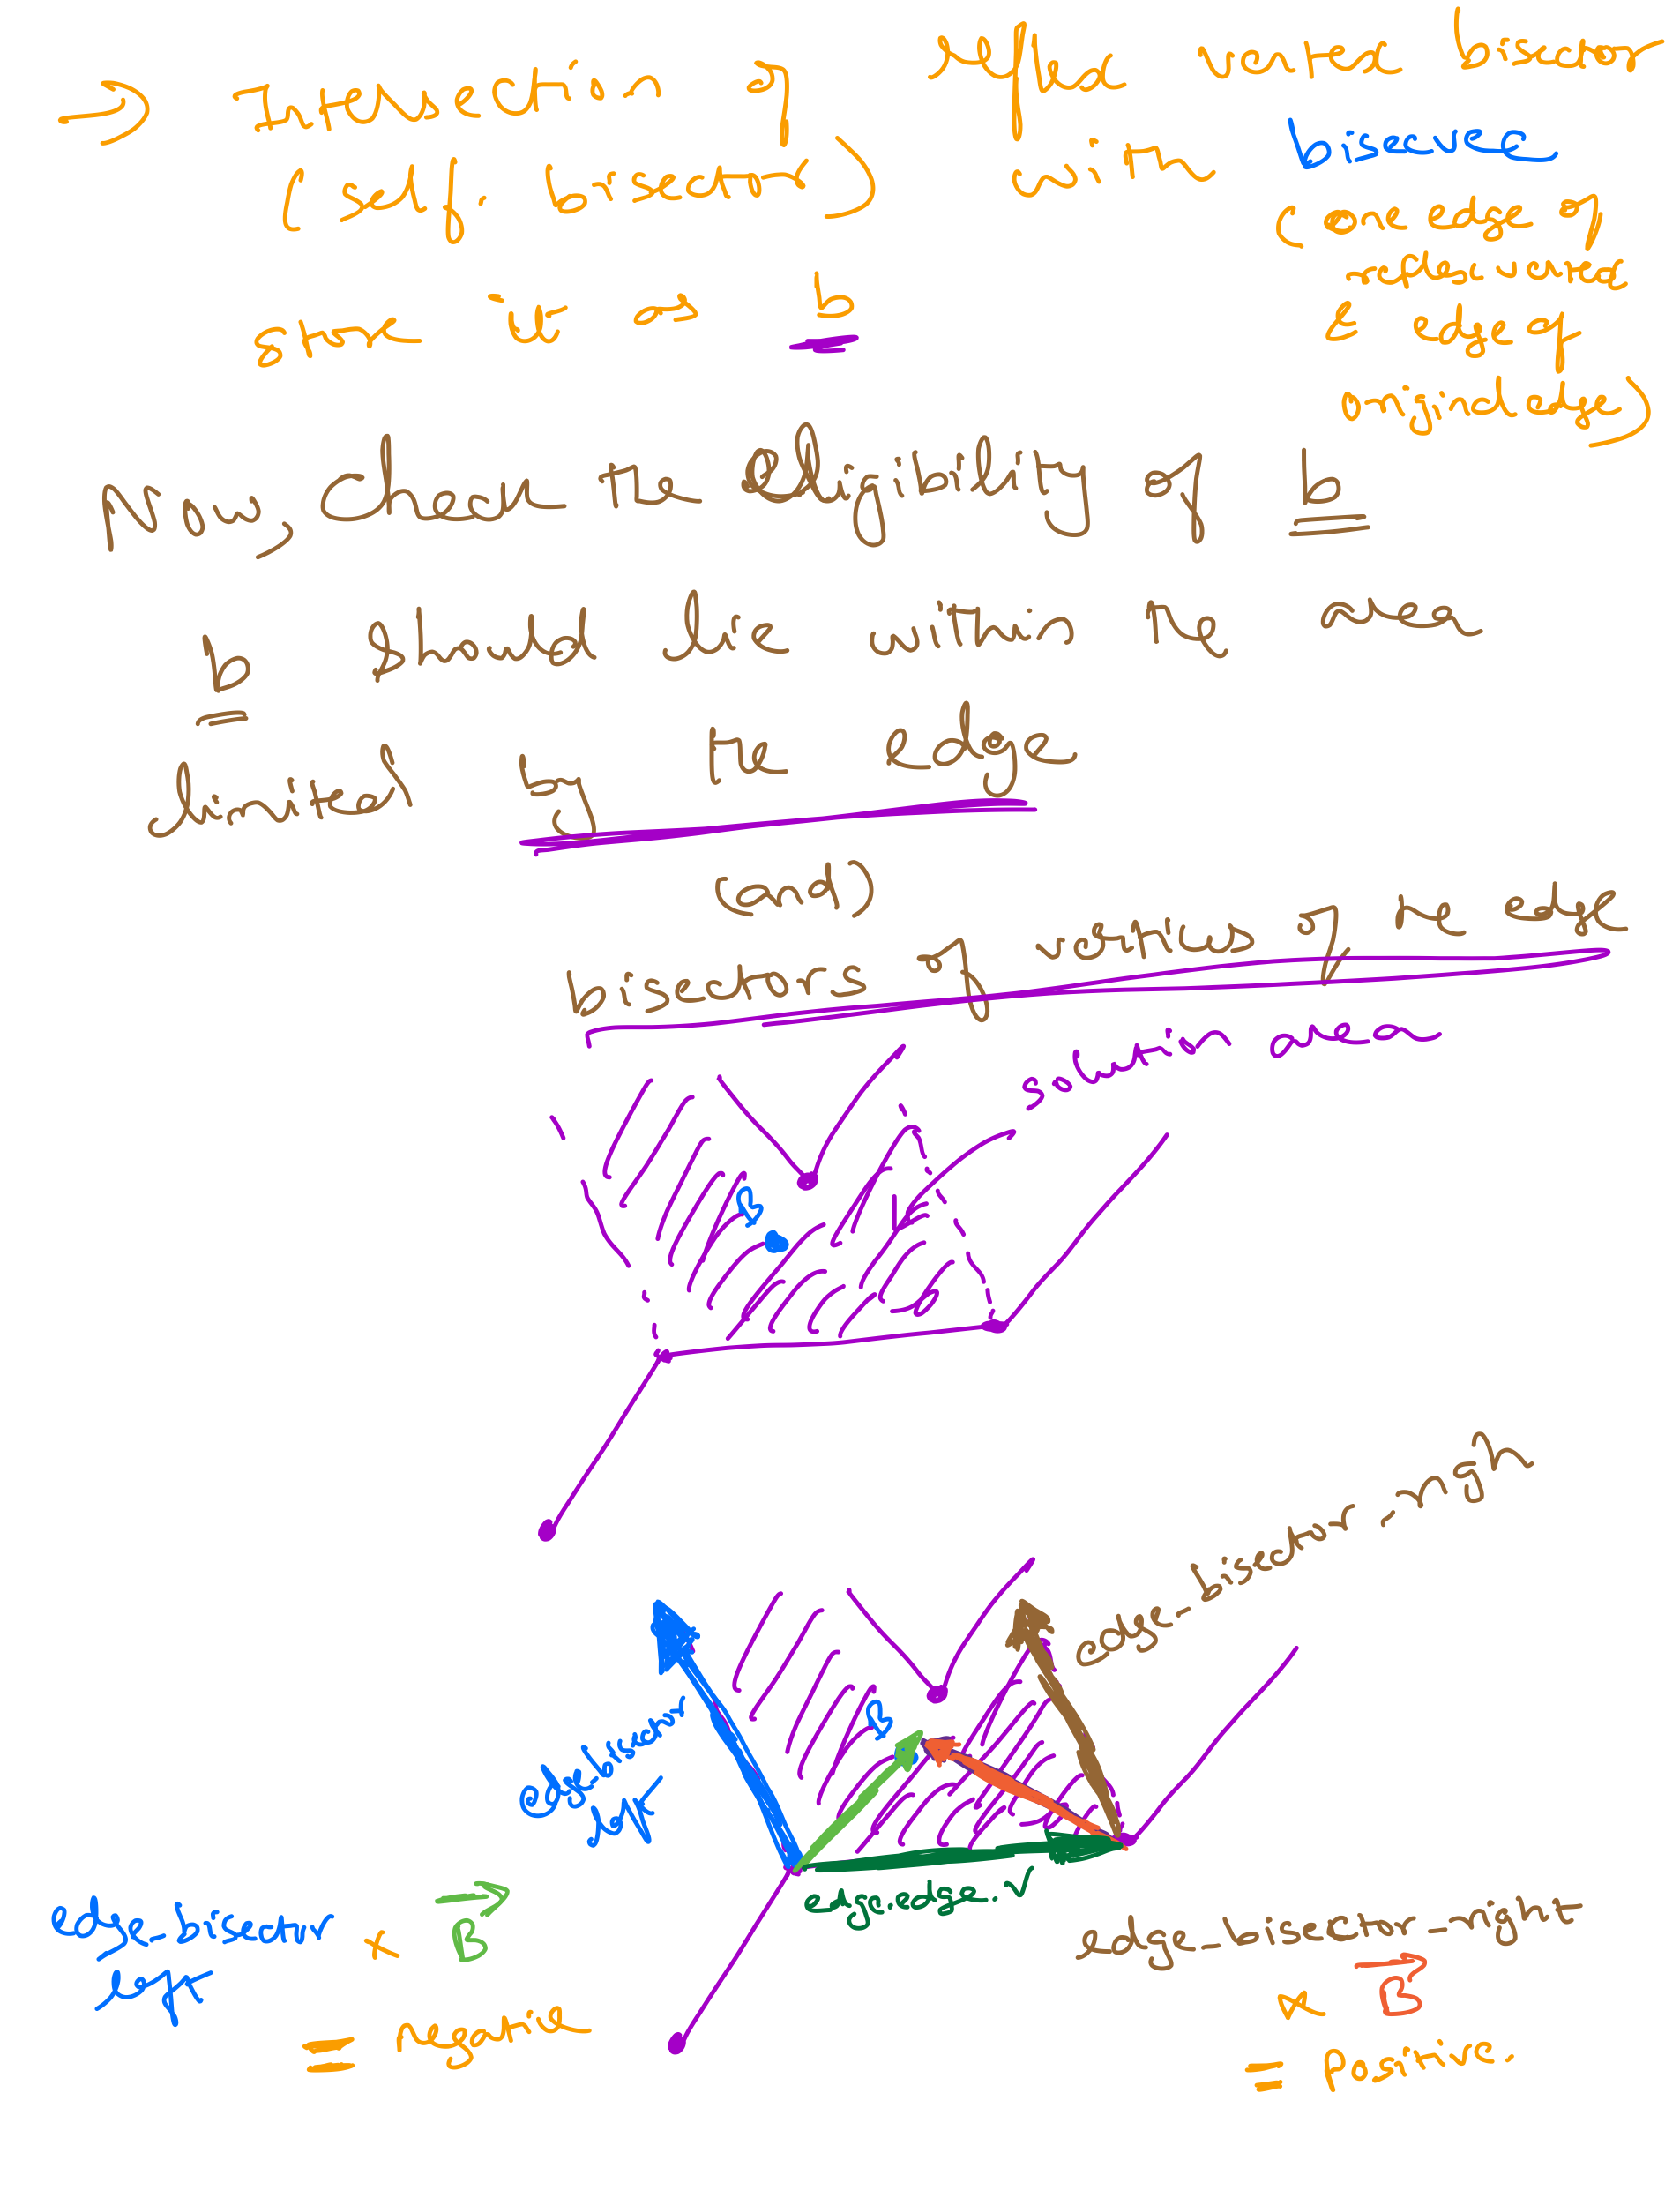 → Intersection of reflex vertex bisector
(self. bisector) with bisecvec
(one edge of
reflex vertex
& edge of
original edge)
store it as b
Now, check the eligibility of b
b should lie within the area
limited by the edge
(and)
bisectors of vertices of the edge
solution area
B
edge_bisector_righ
edge_bisector
left
B
edge.edge.v
edge_bisector
left
× B
= negative
edge_bisector_right
× B
= Positive.